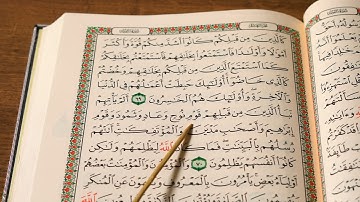 كَٱلَّذِينَ مِن قَبْلِكُمْ كَانُوٓا۟ أَشَدَّ مِنكُمْ قُوَّةً وَأَكْثَرَ
أَمْوَٰلًا وَأَوْلَٰدًا فَٱسْتَمْتَعُوا۟ بِخَلَٰقِهِمْ فَٱسْتَمْتَعْتُم بِخَلَٰقِكُمْ
كَمَا ٱسْتَمْتَعَ ٱلَّذِينَ مِن قَبْلِكُم بِخَلَٰقِهِمْ وَخُضْتُمْ
كَٱلَّذِى خَاضُوٓا۟ أُو۟لَٰٓئِكَ حَبِطَتْ أَعْمَٰلُهُمْ فِى ٱلدُّنْيَا
وَٱلْءَاخِرَةِ وَأُو۟لَٰٓئِكَ هُمُ ٱلْخَٰسِرُونَ ٦٩ أَلَمْ يَأْتِهِمْ
نَبَأُ ٱلَّذِينَ مِن قَبْلِهِمْ قَوْمِ نُوحٍ وَعَادٍ وَثَمُودَ وَقَوْمِ
إِبْرَٰهِيمَ وَأَصْحَٰبِ مَدْيَنَ وَٱلْمُؤْتَفِكَٰتِ أَتَتْهُمْ
رُسُلُهُم بِٱلْبَيِّنَٰتِ فَمَا كَانَ ٱللَّهُ لِيَظْلِمَهُمْ وَلَٰكِن
كَانُوٓا۟ أَنفُسَهُمْ يَظْلِمُونَ ٧٠ وَٱلْمُؤْمِنُونَ وَٱلْمُؤْمِنَٰتُ
بَعْضُهُمْ أَوْلِيَآءُ بَعْضٍ يَأْمُرُونَ بِٱلْمَعْرُوفِ وَيَنْهَوْنَ عَنِ ٱلْمُنكَرِ